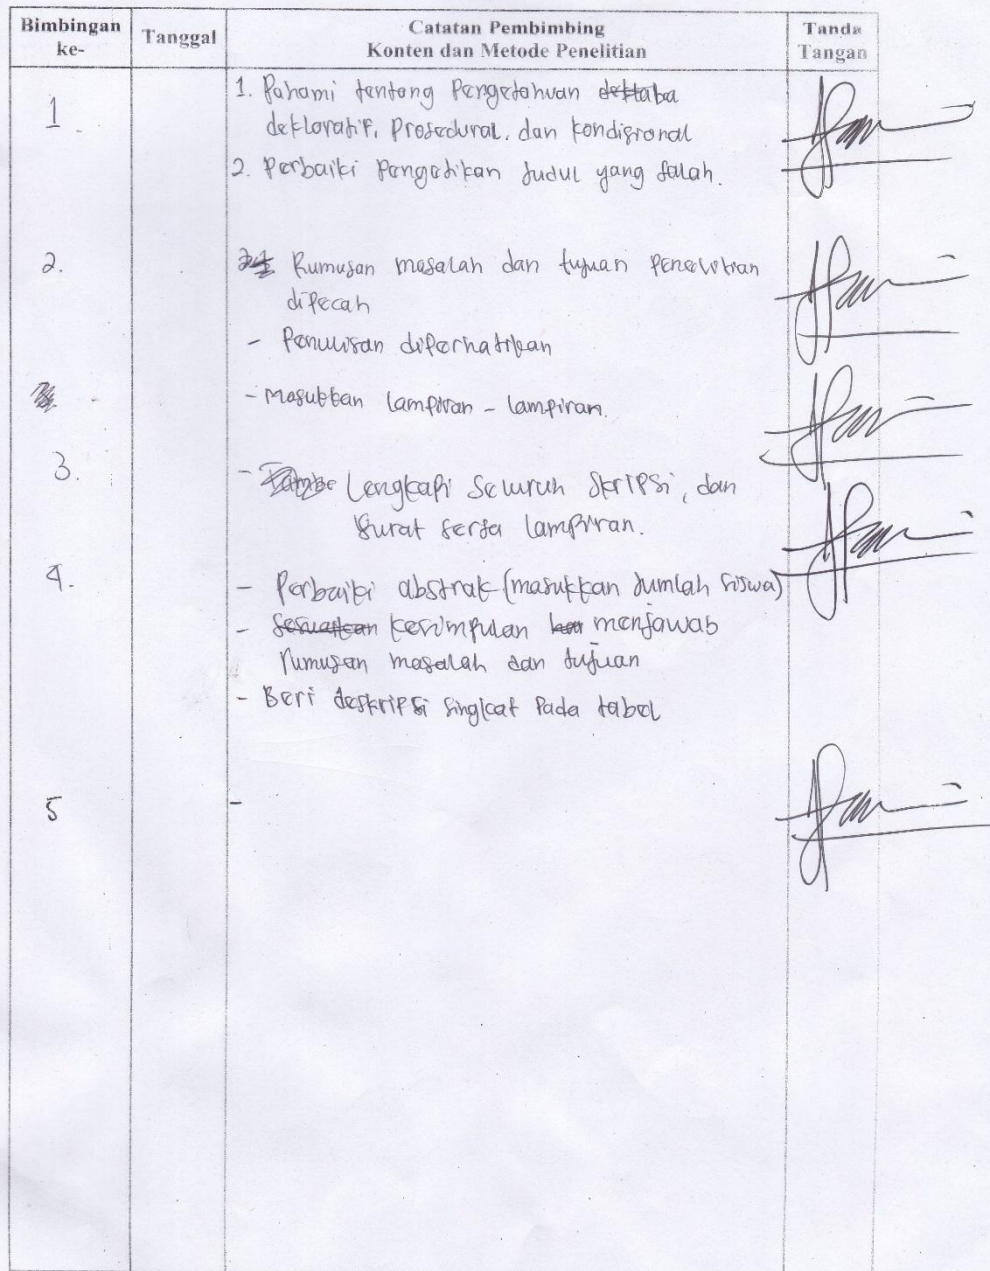 Bimbingan ke-
Tanggal
Catatan Pembimbing
Konten dan Metode Penelitian
Tanda Tangan
1
1. Pahami tentang Pengetahuan
deklaratif, Prosedural, dan kondisional
2. Perbaiki Pengetikan Judul yang salah.
2.
Rumusan masalah dan tujuan Penelitian
dipecah
- Penulisan diperhatikan
- Masukkan lampiran - lampiran.
3.
- Lengkapi Seluruh Skripsi, dan
Surat serta lampiran.
4.
- Perbaiki abstrak (masukkan Jumlah siswa)
- Sesuaikan kesimpulan menjawab
rumusan masalah dan tujuan
- Beri deskripsi singkat Pada tabel
5
-